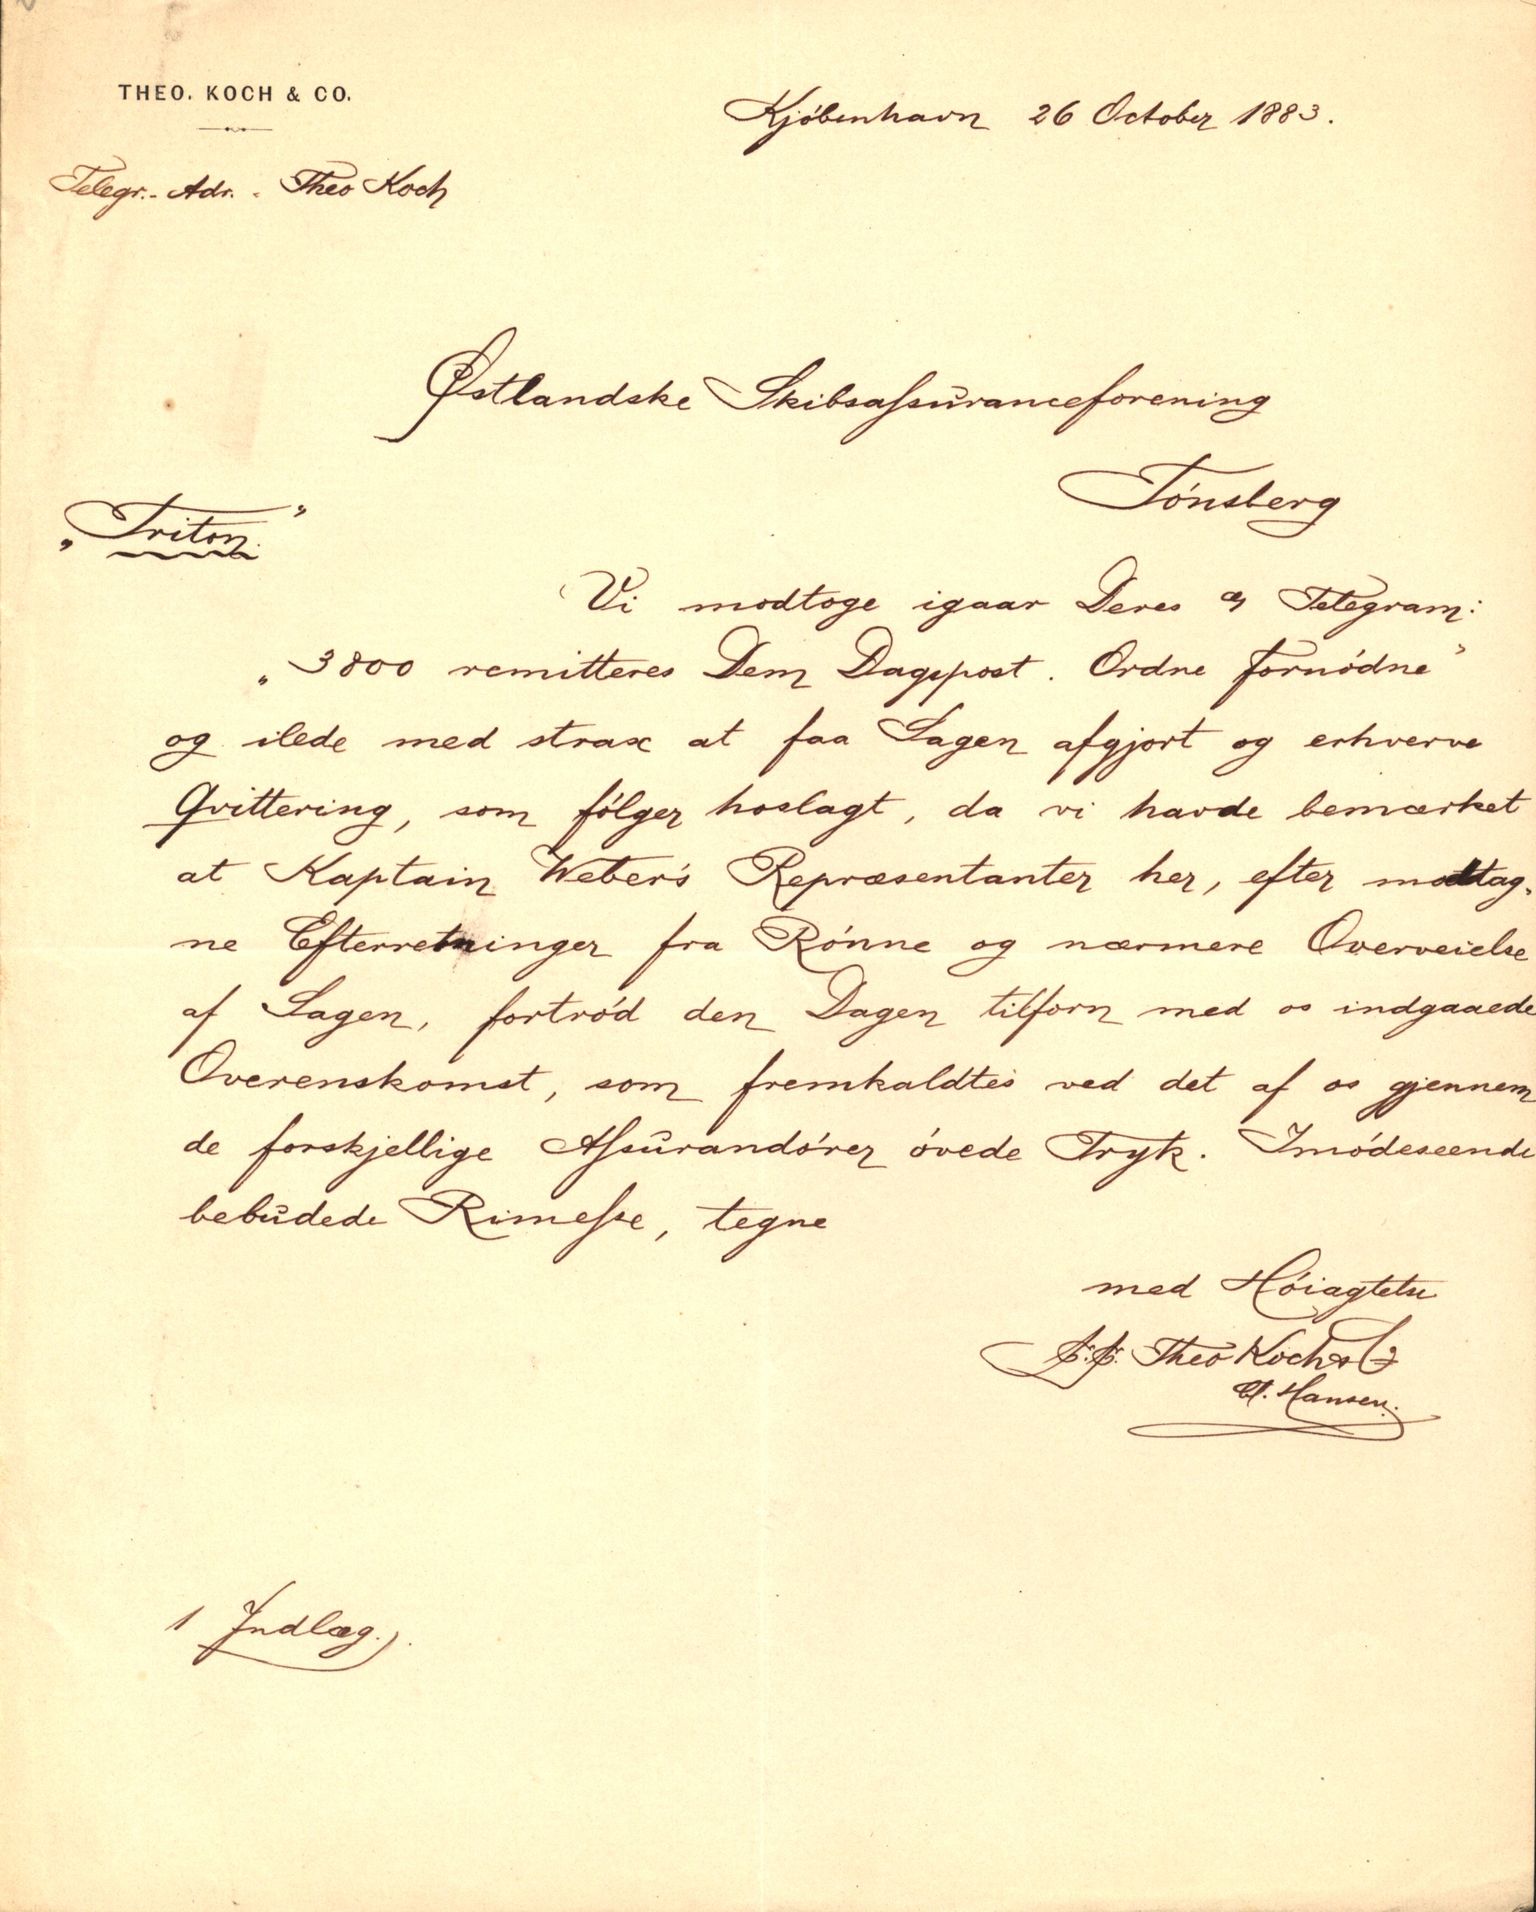 THEO. KOCH & CO.
Kjöbenhavn 26 October 1883.
Telegr.- Adr. Theo Koch
Østlandske Skibsassuranceforening
Tönsberg
„Triton.”
Vi modtoge igaar Deres Telegram:
„3800 remitteres Dem Dagspost. Ordne fornödne”
og ilede med strax at faa Sagen afgjort og erhverve
Qvittering, som fölger hoslagt, da vi havde bemærket
at Kaptain Weber's Repræsentanter her, efter modtag-
ne Efterretninger fra Rönne og nærmere Overveielse
af Sagen, fortröd den Dagen tilforn med os indgaaede
Overenskomst, som fremkaldtes ved det af os gjennem
de forskjellige Assurandörer övede Tryk. Imödeseende
bebudede Rimesse, tegne
med Höiagtelse
p.p. Theo Koch & C
Hansen.
1 Indlæg.